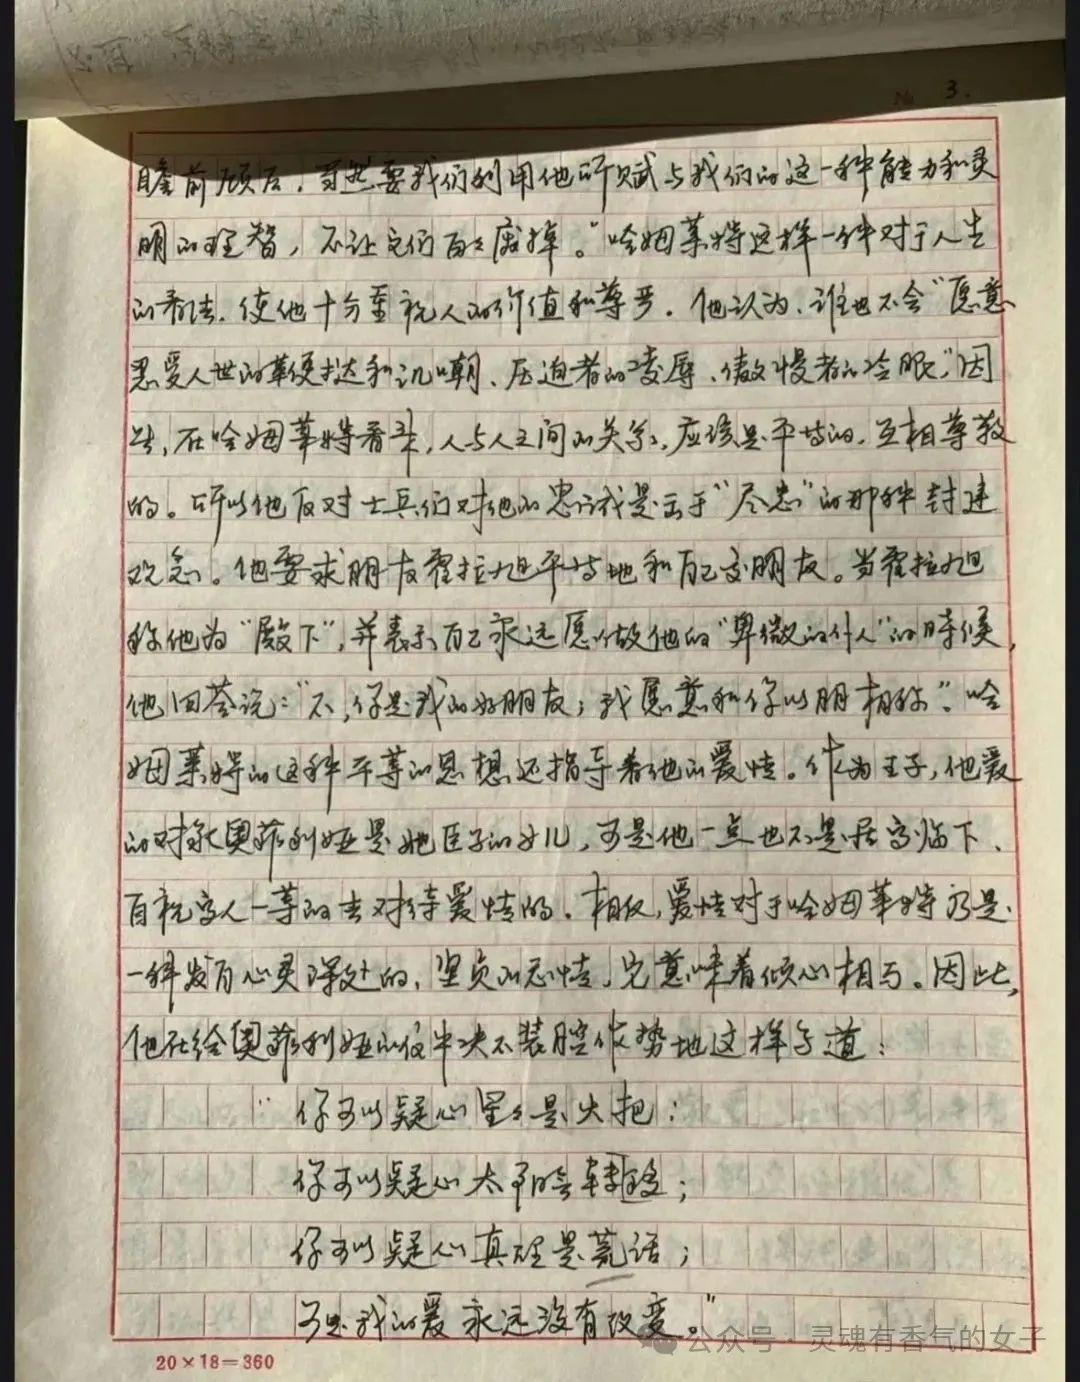 No 3.
瞻前顾后，当然要我们利用他所赋与我们的这一种能力和灵
明的理智，不让它们白白废掉。”哈姆莱特这样一种对于人生
的看法，使他十分重视人的价值和尊严。他认为，谁也不会“愿意
忍受人世的鞭挞和讥嘲、压迫者的凌辱、傲慢者的冷眼”，因
此，在哈姆莱特看来，人与人之间的关系，应该是平等的，互相尊敬
的。所以他反对士兵们对他的忠诚是出于“尽忠”的那种封建
观念。他要求朋友霍拉旭平等地和自己交朋友。当霍拉旭
称他为“殿下”，并表示自己永远愿做他的“卑微的仆人”的时候，
他回答说：“不，你是我的好朋友；我愿意和你以朋相称”。哈
姆莱特的这种平等的思想还指导着他的爱情。作为王子，他爱
的对象奥菲利娅是她臣子的女儿，可是他一点也不是居高临下、
自视高人一等的去对待爱情的。相反，爱情对于哈姆莱特乃是
一种发自心灵深处的，坚贞的恋情，它意味着倾心相与。因此，
他在给奥菲利娅的信中决不装腔作势地这样写道：
“你可以疑心星星是火把；
你可以疑心太阳会转移；
你可以疑心真理是荒话；
可是我的爱永远没有改变。”
20×18=360
公众号·灵魂有香气的女子